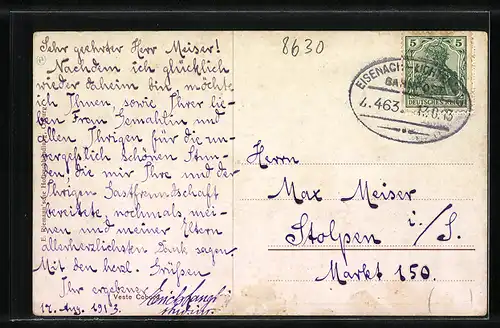 Sehr geehrter Herr Meiser!
Nachdem ich glücklich
wieder daheim bin möchte
ich Ihnen, sowie Ihrer lie-
ben Frau Gemahlin und
allen Ihrigen für die un-
vergeßlich schönen Stun-
den, die mir Ihre und der
Ihrigen Gastfreundschaft
bereitete, nochmals, mei-
nen und meiner Eltern
allerherzlichsten Dank sagen.
Mit den herzl. Grüßen
Ihr ergebener
Veste
17. Aug. 1913.
8630
5 5
DEUTSCHES REICH
EISENACH
BAHNPOST
Z. 463
13
Herrn
Max Meiser
Stolpen i./S.
Markt 150.